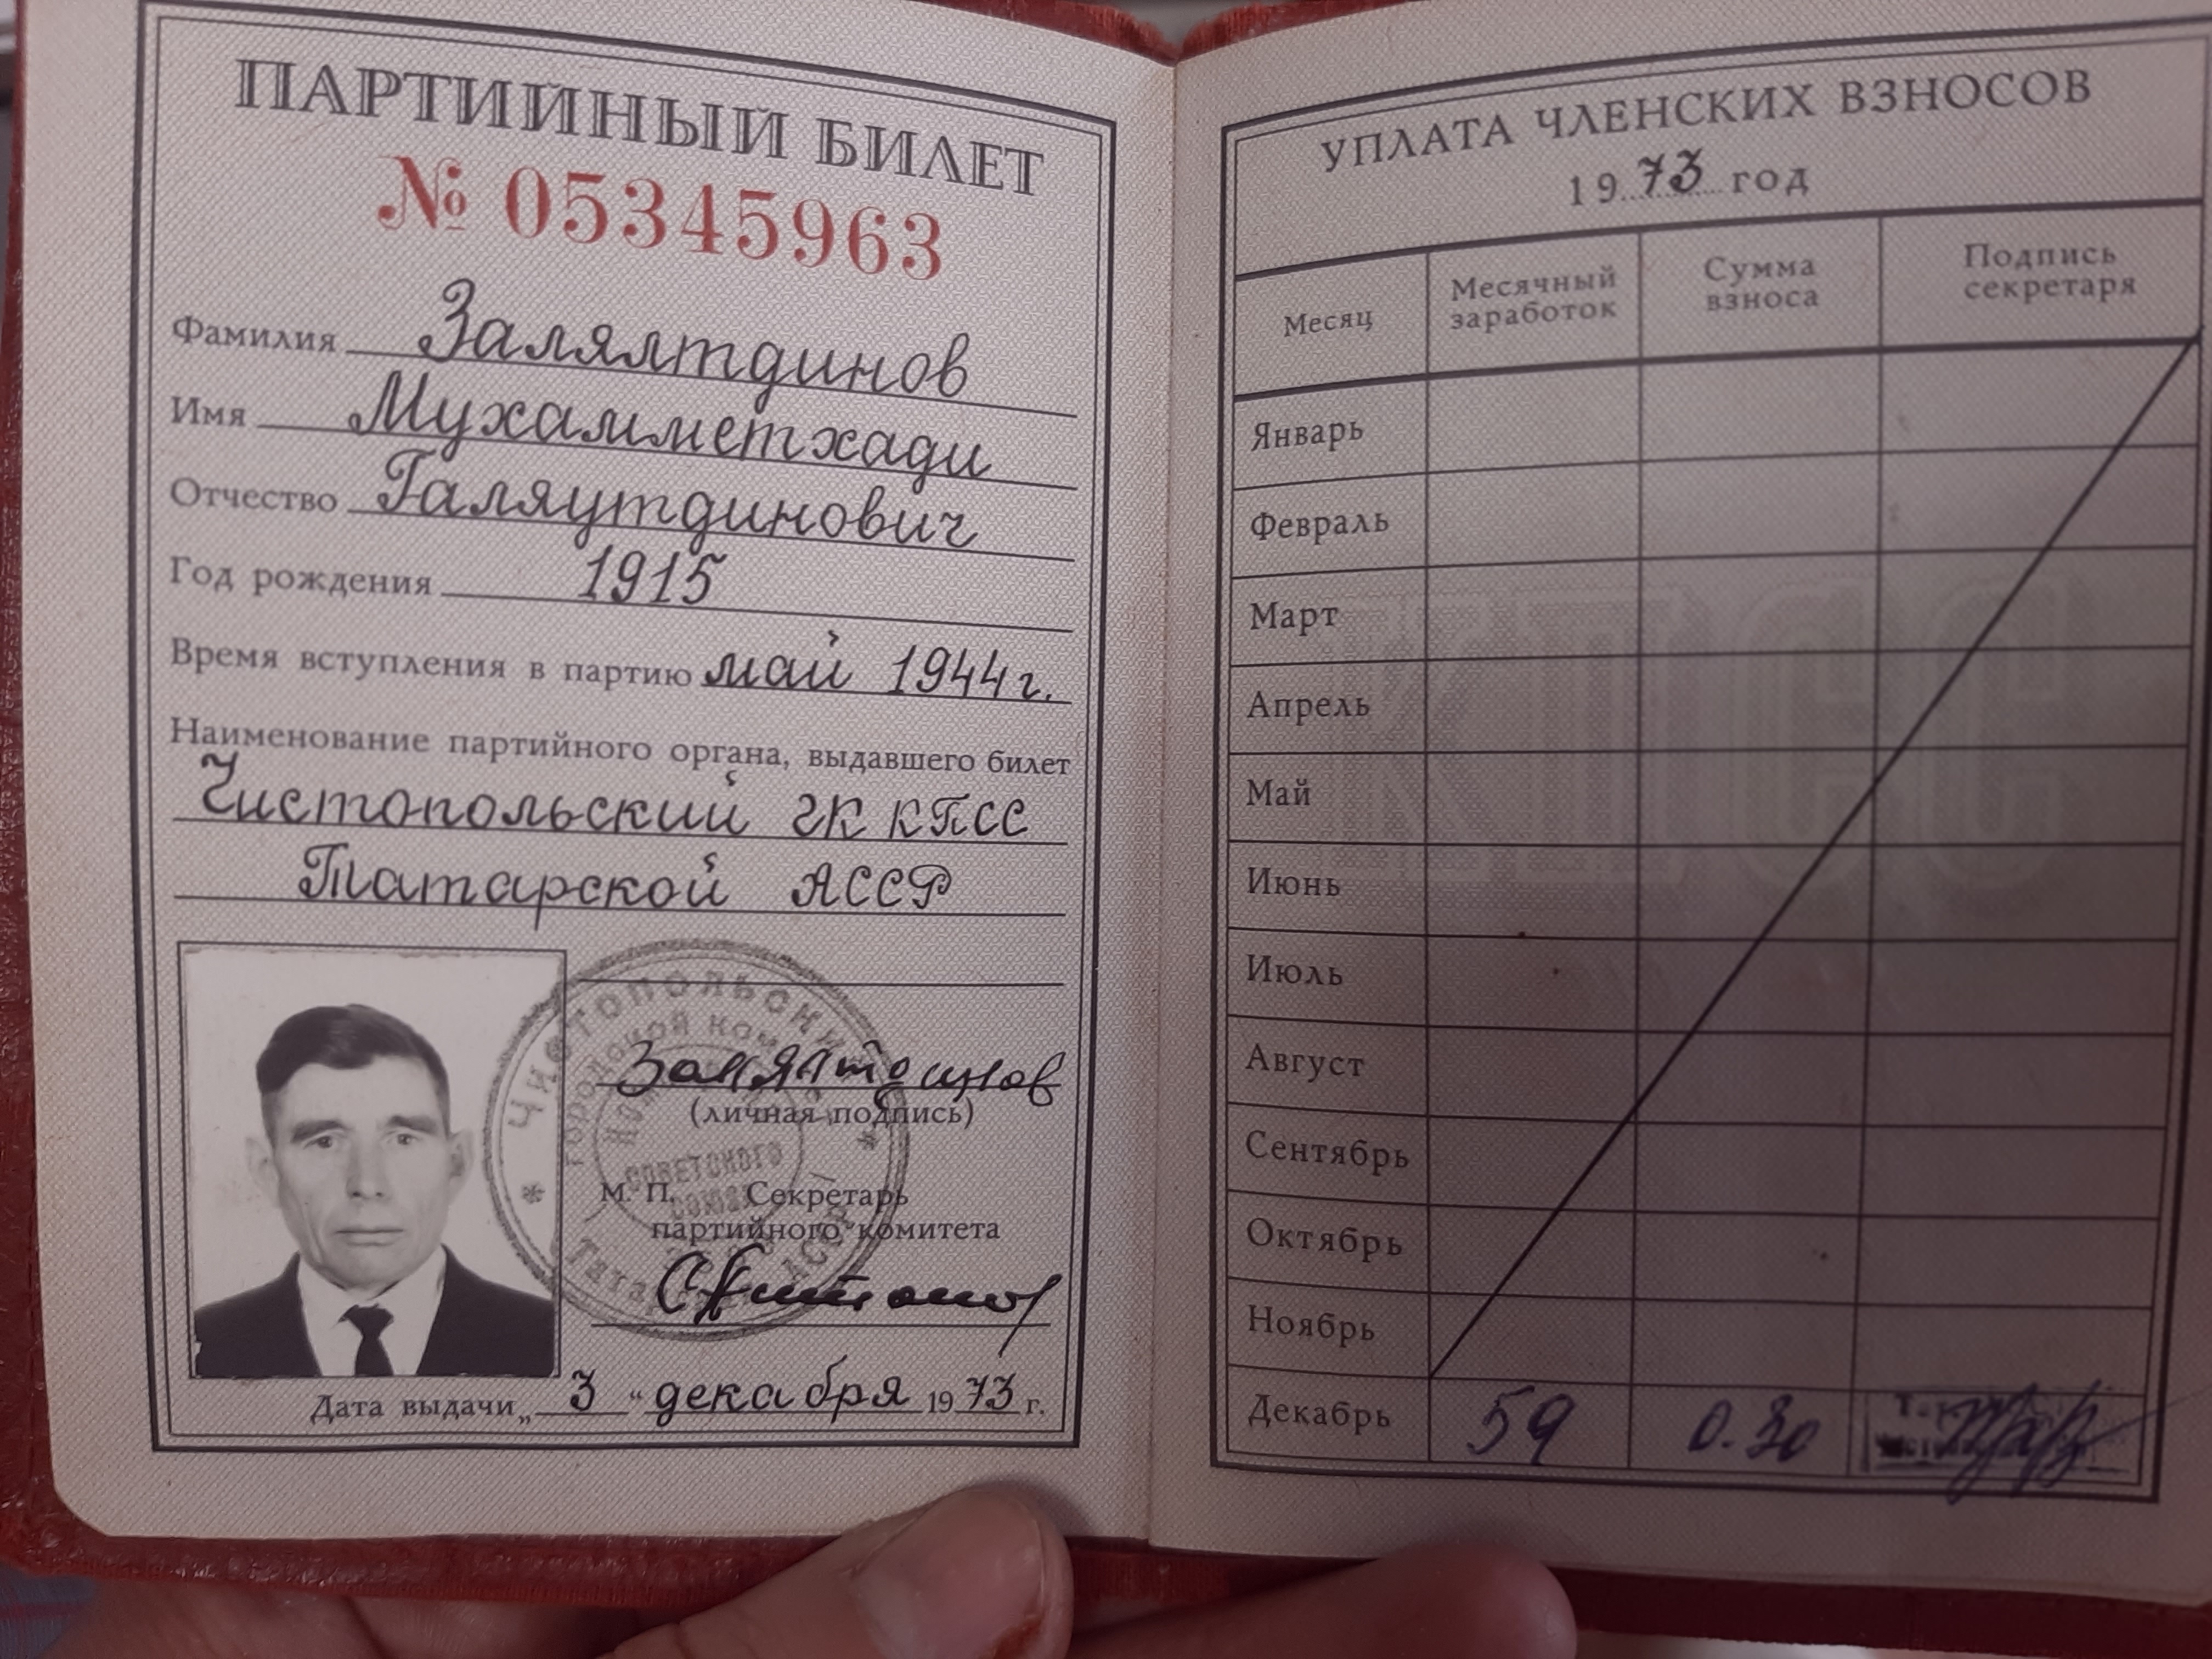 ПАРТИЙНЫЙ БИЛЕТ
№ 05345963
Фамилия Залялтдинов
Имя Мухамметхади
Отчество Галяутдинович
Год рождения 1915
Время вступления в партию май 1944 г.
Наименование партийного органа, выдавшего билет
Чистопольский гк кпсс
Татарской АССР
Чистопольский
городской ком
Советского
Союза
Залялтдинов
(личная подпись)
М. П. Секретарь
партийного комитета
Дата выдачи „ 3 “ декабря 1973 г.
УПЛАТА ЧЛЕНСКИХ ВЗНОСОВ
1973 год
Месяц Месячный заработок Сумма взноса Подпись секретаря
Январь
Февраль
Март
Апрель
Май
Июнь
Июль
Август
Сентябрь
Октябрь
Ноябрь
Декабрь 59 0.30
КПСС